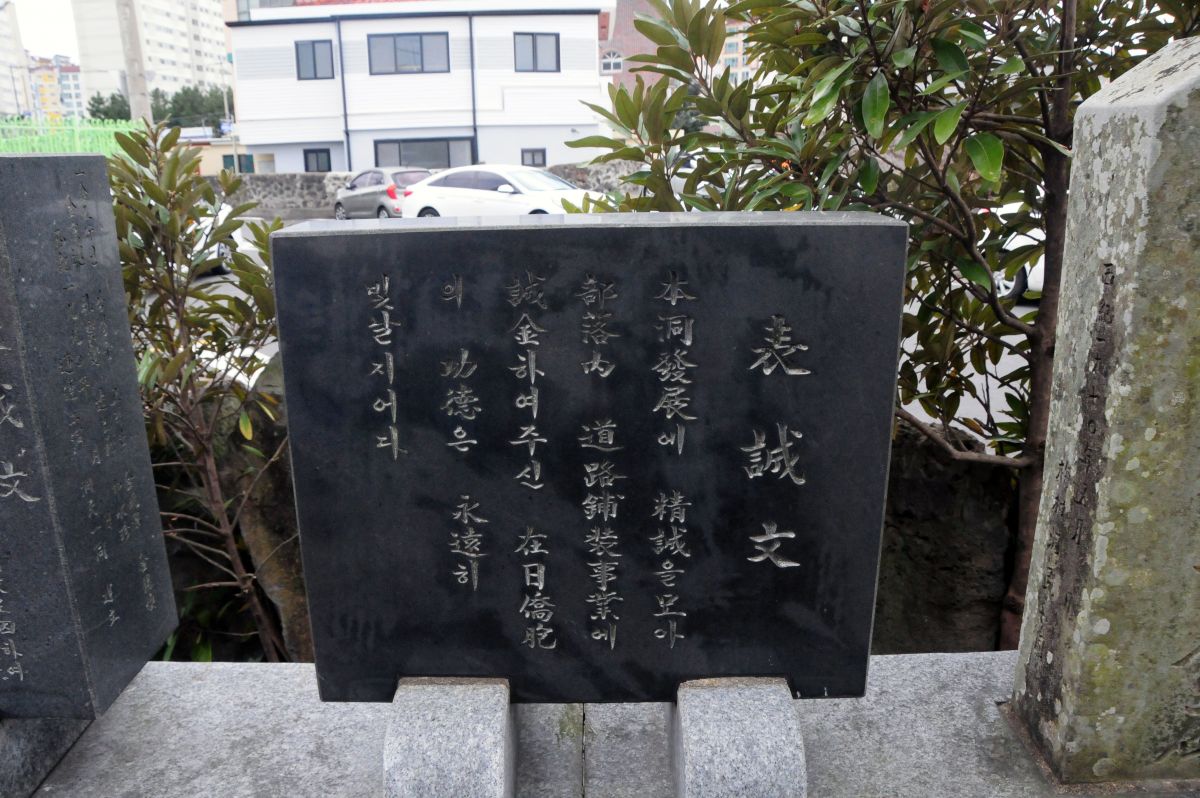 表誠文
本洞發展에 精誠을 모아
部落內 道路鋪装事業에
誠金하여주신 在日僑胞
의 功德은 永遠히
빛날지어다